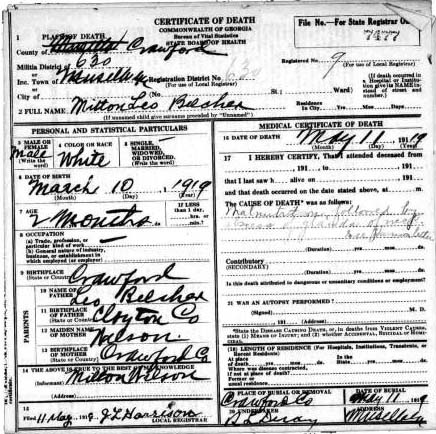 CERTIFICATE OF DEATH
COMMONWEALTH OF GEORGIA
Bureau of Vital Statistics
STATE BOARD OF HEALTH
File No.—For State Registrar
1 PLACE OF DEATH
County of Crawford
Registered No. 9
(For use of Local Registrar)
Militia District of 630
or
Inc. Town of Registration District No. 630
(For use of Local Registrar)
or
City of (No. St.; Ward)
(If death occurred in a Hospital or Institution give its NAME instead of street and number.)
2 FULL NAME Milton Leo Belcher
Residence In City Yrs. Mos. Days
(If unnamed child give surname preceded by "Unnamed")
PERSONAL AND STATISTICAL PARTICULARS
3 MALE OR FEMALE (Write the word) Male
4 COLOR OR RACE White
5 SINGLE, MARRIED, WIDOWED, OR DIVORCED. (Write the word)
6 DATE OF BIRTH
March 10 1919
(Month) (Day)
7 AGE
2 Months
IF LESS than 1 day, hrs. or min.
8 OCCUPATION
(a) Trade, profession, or particular kind of work
(b) General nature of industry, business, or establishment in which employed (or employer)
9 BIRTHPLACE (State or Country) Crawford
PARENTS
10 NAME OF FATHER Leo Belcher
11 BIRTHPLACE OF FATHER (State or Country) Clayton Co
12 MAIDEN NAME OF MOTHER Wilson
13 BIRTHPLACE OF MOTHER (State or Country) Crawford Co
14 THE ABOVE IS TRUE TO THE BEST OF MY KNOWLEDGE
(Informant) Milton Wilson
15
Filed 11 May, 1919 J L Harrison
LOCAL REGISTRAR
MEDICAL CERTIFICATE OF DEATH
16 DATE OF DEATH May 11 1919
(Month) (Day)
17 I HEREBY CERTIFY, That I attended deceased from
191 to 191
that I last saw h alive on 191
and that death occurred on the date stated above, at m.
The CAUSE OF DEATH* was as follows:
Malnutrition followed by
(Duration) yrs. mos. ds.
Contributory (SECONDARY)
(Duration) yrs. mos. ds.
Is this death attributed to dangerous or unsanitary conditions or employment?
21 WAS AN AUTOPSY PERFORMED?
(Signed) M. D.
191 (Address)
*State the DISEASE CAUSING DEATH, or, in deaths from VIOLENT CAUSES, state (1) MEANS OF INJURY; (2) whether ACCIDENTAL, SUICIDAL or HOMICIDAL.
18 LENGTH OF RESIDENCE (For Hospitals, Institutions, Transients, or Recent Residents)
At place of death yrs. mos. ds. In the State yrs. mos. ds.
Where was disease contracted, if not at place of death?
Former or usual residence
19 PLACE OF BURIAL OR REMOVAL Crawford Co
DATE OF BURIAL May 11 1919
20 UNDERTAKER
ADDRESS